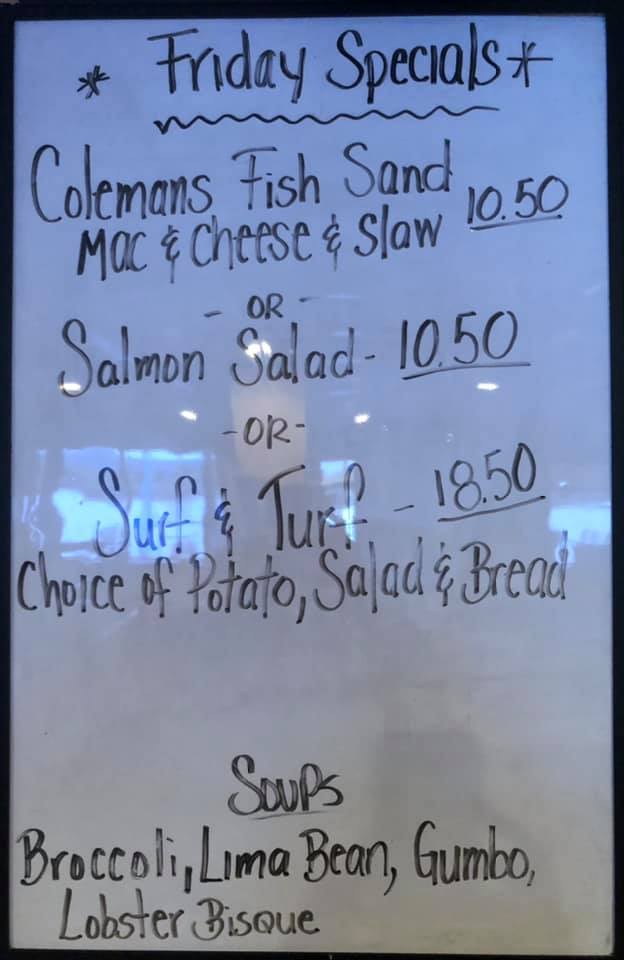 * Friday Specials *
Colemans Fish Sand 10.50
Mac & Cheese & Slaw
- OR -
Salmon Salad - 10.50
- OR -
Surf & Turf - 18.50
Choice of Potato, Salad & Bread
Soups
Broccoli, Lima Bean, Gumbo,
Lobster Bisque